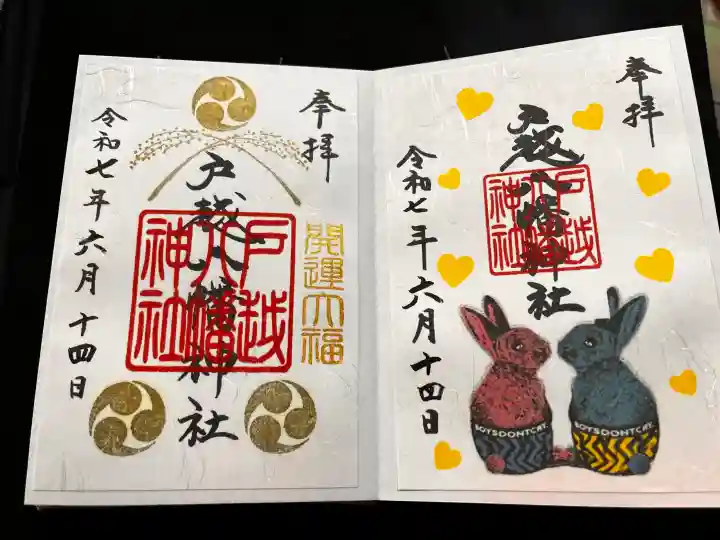 奉拝
戸越八幡神社
戸越
八幡
神社
開運大福
令和七年六月十四日
奉拝
戸越八幡神社
戸越
八幡
神社
令和七年六月十四日
BOYSDONTCRY.
BOYSDONTCRY.